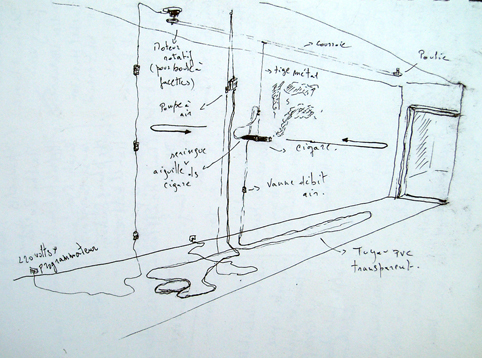 Moteur
rotatif
(pour boule à
facettes)
courroie
Poulie
tige métal
Pompe à
air
seringue
aiguille ds
cigare
cigare.
Vanne débit
air.
220 volts +
programmateur
Tuyau PVC
transparent.